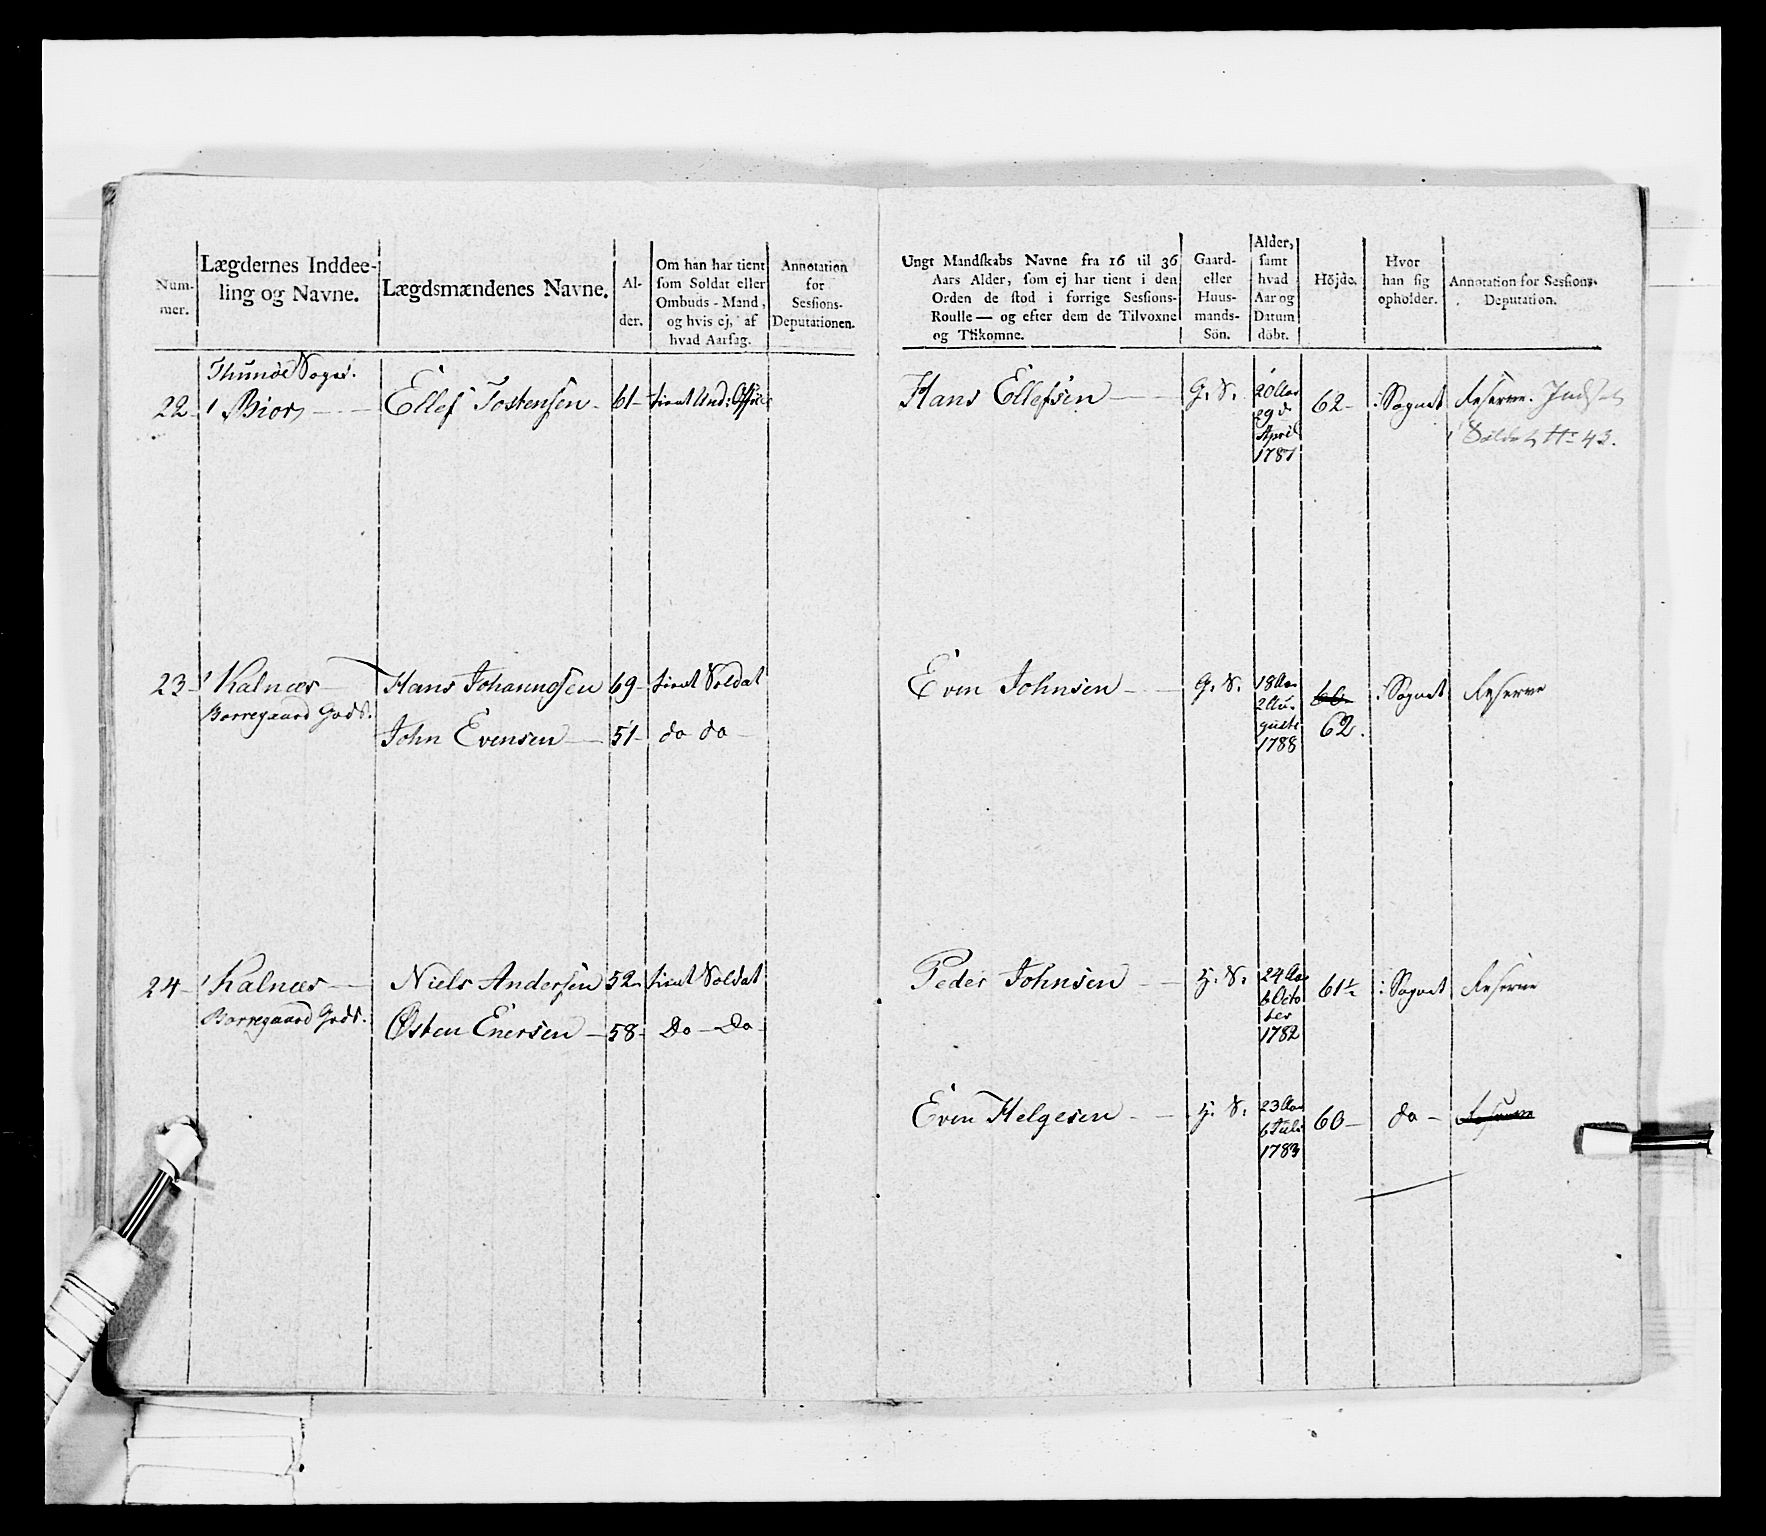 Num-
mer.
Lægdernes Inddee-
ling og Navne.
Lægdsmændenes Navne.
Al-
der.
Om han har tient
som Soldat eller
Ombuds-Mand,
og hvis ej, af
hvad Aarsag.
Annotation
for
Sessions-
Deputationen.
Ungt Mandskabs Navne fra 16 til 36
Aars Alder, som ej har tient i den
Orden de stod i forrige Sessions-
Roulle — og efter dem de Tilvoxne
og Tilkomne.
Gaard-
eller
Huus-
mands-
Sön.
Alder,
samt
hvad
Aar og
Datum
döbt.
Höjde.
Hvor
han sig
opholder.
Annotation for Sessions-
Deputation.
Thunöe Sogn.
22 - 1 Biør
Ellef Tostensen - 61 - tient Und: Offic:
Hans Ellefsen G. S. 20 Aar
29d
April
1787
62 - i Sognet Reserve. Indsat
Soldat No 43.
23 - 1 Kalnæs
Borregaard Gods.
Hans Johannesen 69 - tient Soldat
John Evensen 51 - do do
Even Johnsen G. S. 18 Aar
2 Au-
gusti
1788
60
62.
i Sognet Reserve
24 - 1 Kalnæs
Borregaard Gods.
Niels Andersen 52 - tient Soldat
Østen Enersen 58 - Do - Do
Peder Johnsen H. S. 24 Aar
6 Octo
ber
1782
61½ i Sognet Reserve
Even Helgesen H. S. 23 Aar
6 Juli
1783
60 - do - Reserve